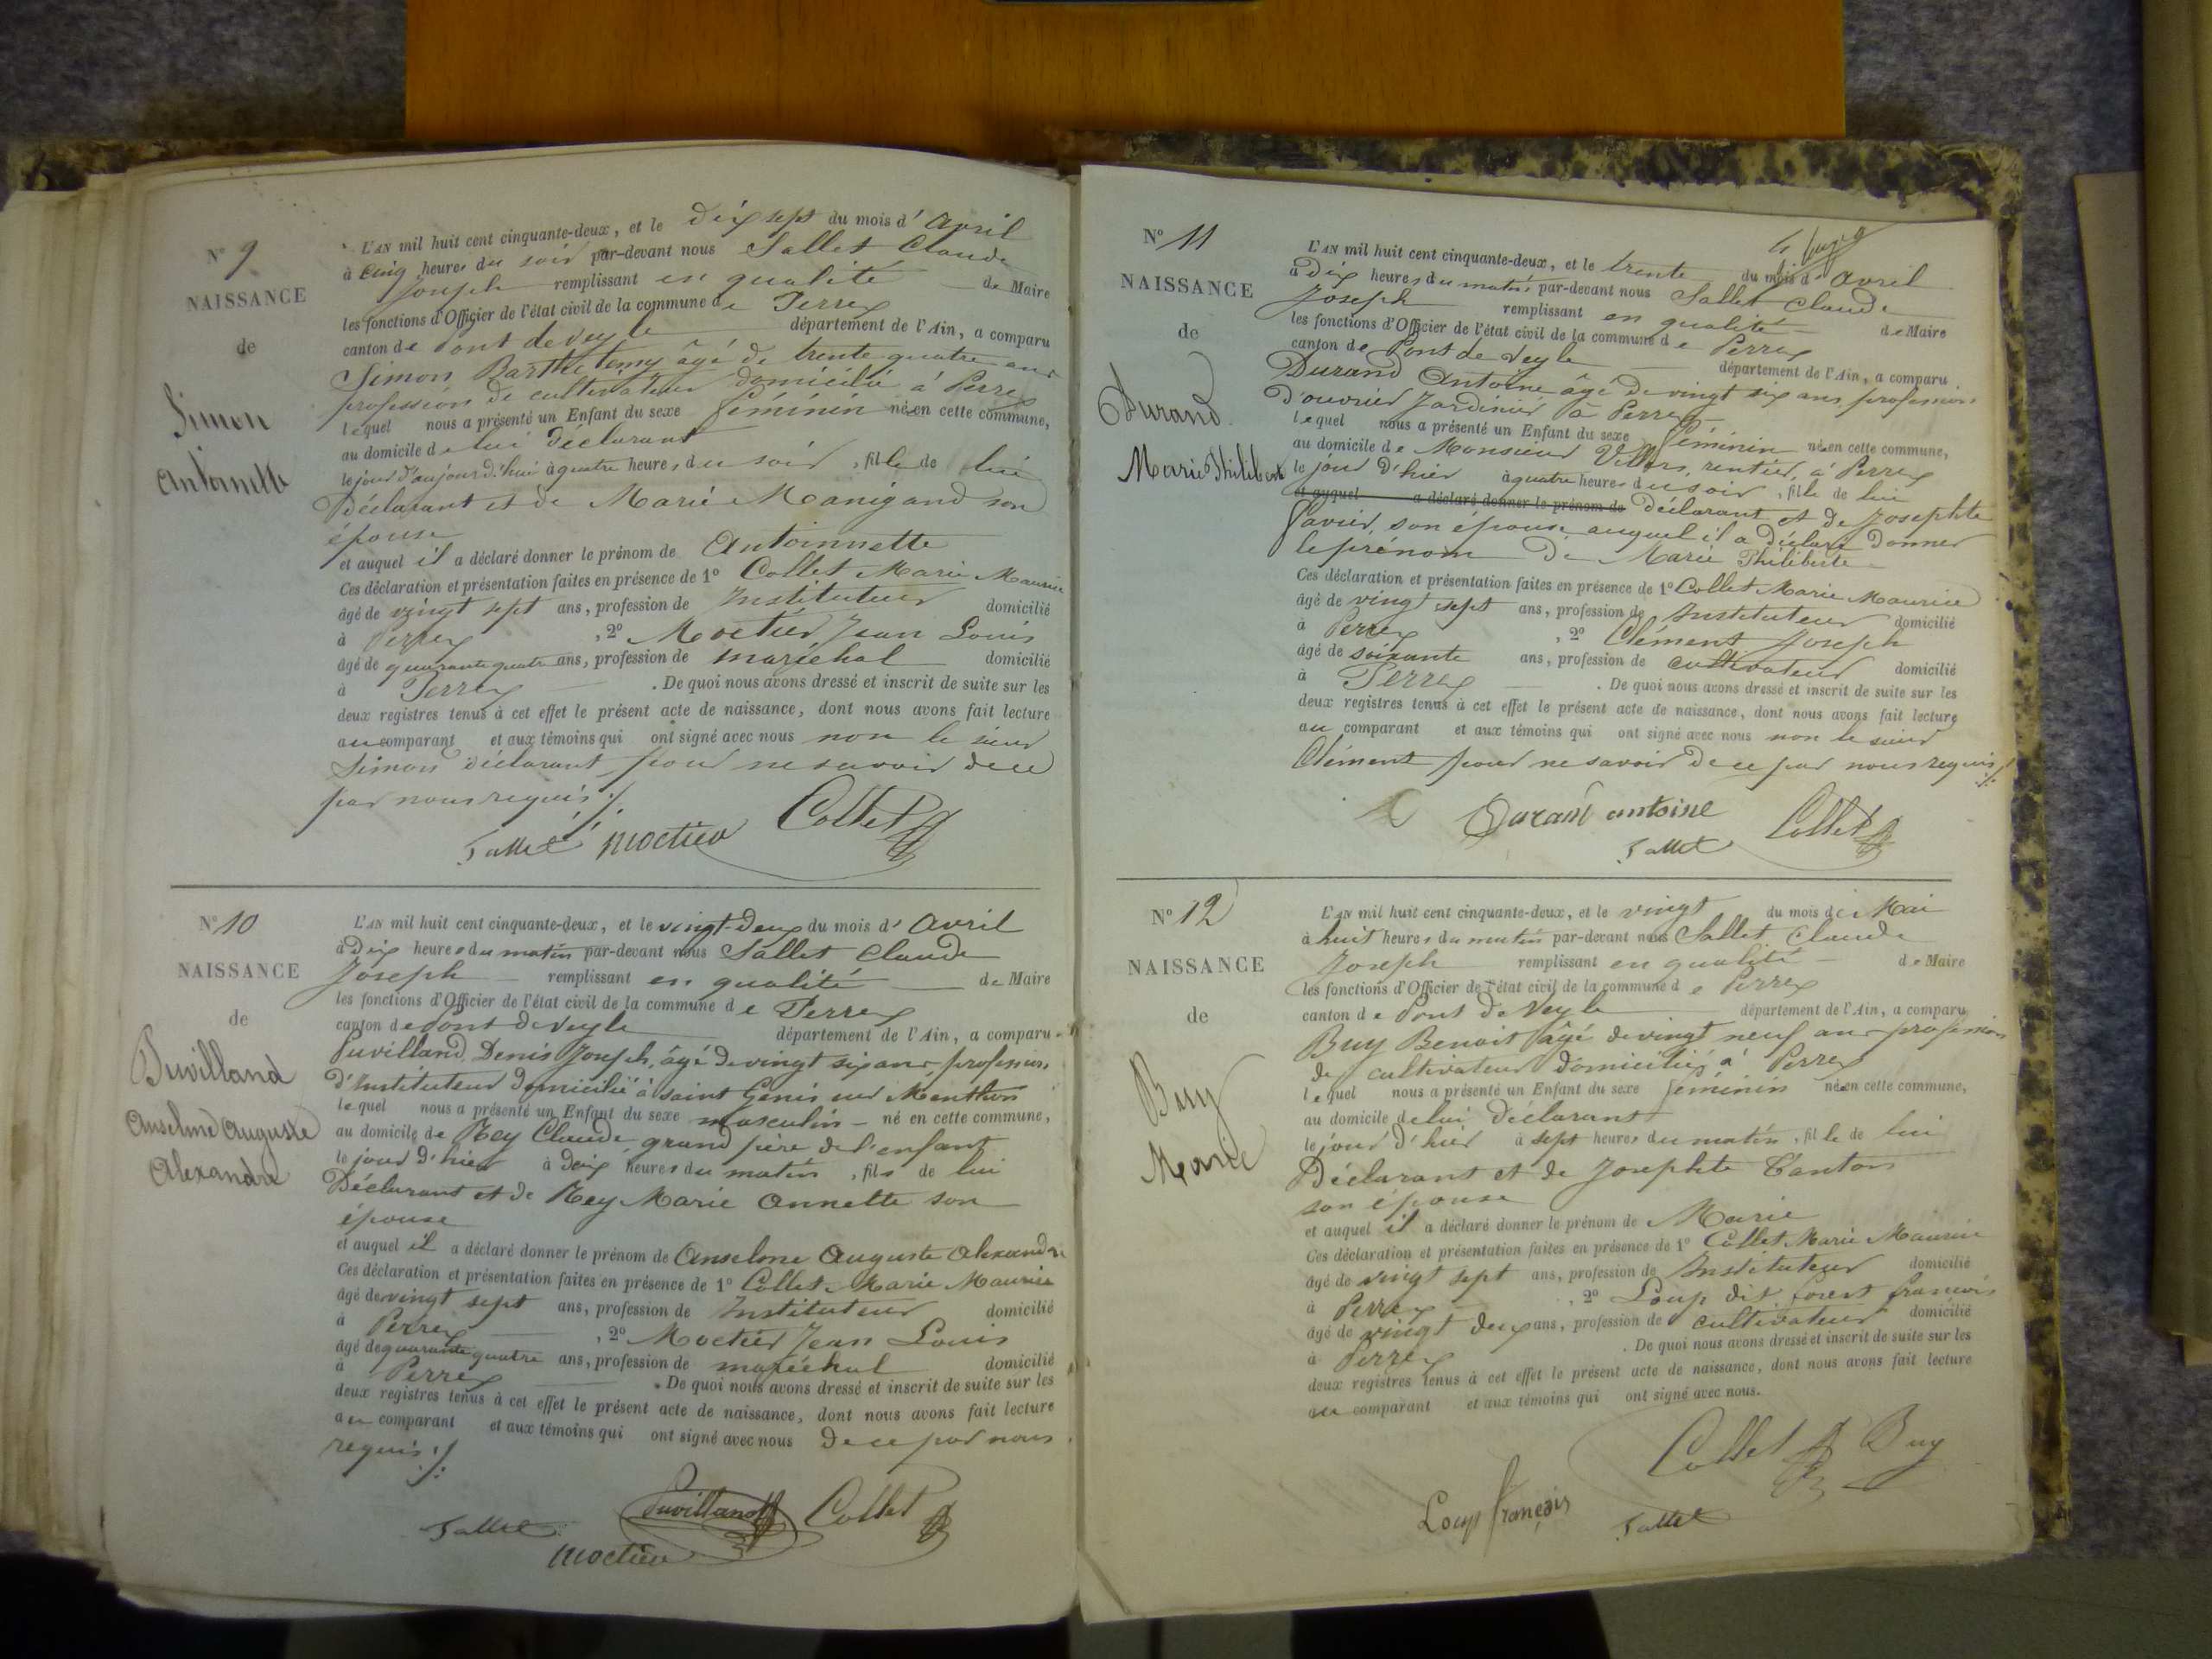 N° 9
NAISSANCE
de
Simon
Antoinette
L'AN mil huit cent cinquante-deux, et le dix sept du mois d'Avril
à cinq heures du soir par-devant nous Sallet Claude
Joseph remplissant en qualité de Maire
les fonctions d'Officier de l'état civil de la commune de Perrex
canton de Pont de Veyle département de l'Ain, a comparu
Simon Barthelemy âgé de trente quatre ans
profession de cultivateur domicilié à Perrex
lequel nous a présenté un Enfant du sexe féminin né en cette commune,
au domicile de lui Déclarant
le jour d'aujourd'hui à quatre heures du soir, fille de lui
Déclarant et de Marie Manigand son
épouse
et auquel il a déclaré donner le prénom de Antoinnette
Ces déclaration et présentation faites en présence de 1° Collet Marie Maurice
âgé de vingt sept ans, profession de Instituteur domicilié
à Perrex, 2° Moctier Jean Louis
âgé de quarante quatre ans, profession de maréchal domicilié
à Perrex. De quoi nous avons dressé et inscrit de suite sur les
deux registres tenus à cet effet le présent acte de naissance, dont nous avons fait lecture
au comparant et aux témoins qui ont signé avec nous non le sieur
Simon déclarant pour ne savoir de ce
par nous requis ./.
Sallet Moctier Collet
N° 10
NAISSANCE
de
Puvilland
Anselme Auguste
Alexandre
L'AN mil huit cent cinquante-deux, et le vingt-deux du mois d'Avril
à Dix heures du matin par-devant nous Sallet Claude
Joseph remplissant en qualité de Maire
les fonctions d'Officier de l'état civil de la commune de Perrex
canton de Pont de Veyle département de l'Ain, a comparu
Puvilland Denis Joseph, âgé de vingt six ans, profession
d'Instituteur domicilié à saint Genis sur Menthon
lequel nous a présenté un Enfant du sexe masculin né en cette commune,
au domicile de Rey Claude grand père de l'enfant
le jour d'hier à dix heures du matin, fils de lui
Déclarant et de Rey Marie Annette son
épouse
et auquel il a déclaré donner le prénom de Anselme Auguste Alexandre
Ces déclaration et présentation faites en présence de 1° Collet Marie Maurice
âgé de vingt sept ans, profession de Instituteur domicilié
à Perrex, 2° Moctier Jean Louis
âgé de quarante quatre ans, profession de maréchal domicilié
à Perrex. De quoi nous avons dressé et inscrit de suite sur les
deux registres tenus à cet effet le présent acte de naissance, dont nous avons fait lecture
au comparant et aux témoins qui ont signé avec nous de ce par nous
requis ./.
Sallet Puvilland Collet
Moctier
N° 11
NAISSANCE
de
Durand
Marie Philiberte
L'AN mil huit cent cinquante-deux, et le trente du mois d'Avril
à Dix heures du matin par-devant nous Sallet Claude
Joseph remplissant en qualité de Maire
les fonctions d'Officier de l'état civil de la commune de Perrex
canton de Pont de Veyle département de l'Ain, a comparu
Durand Antoine âgé de vingt six ans, profession
d'ouvrier Jardinier à Perrex
lequel nous a présenté un Enfant du sexe féminin né en cette commune,
au domicile de Monsieur Villars, rentier, à Perrex
le jour d'hier à quatre heures du soir, fille de lui
et auquel a déclaré donner le prénom de Déclarant et de Josephte
Favier, son épouse auquel il a déclaré donner
le prénom de Marie Philiberte
Ces déclaration et présentation faites en présence de 1° Collet Marie Maurice
âgé de vingt sept ans, profession de Instituteur domicilié
à Perrex, 2° Clément Joseph
âgé de soixante ans, profession de cultivateur domicilié
à Perrex. De quoi nous avons dressé et inscrit de suite sur les
deux registres tenus à cet effet le présent acte de naissance, dont nous avons fait lecture
au comparant et aux témoins qui ont signé avec nous non le sieur
Clément pour ne savoir de ce par nous requis ./.
Durant antoine Collet
Sallet
N° 12
NAISSANCE
de
Buy
Marie
L'AN mil huit cent cinquante-deux, et le vingt du mois de Mai
à huit heures du matin par-devant nous Sallet Claude
Joseph remplissant en qualité de Maire
les fonctions d'Officier de l'état civil de la commune de Perrex
canton de Pont de Veyle département de l'Ain, a comparu
Buy Benoit âgé de vingt neuf ans profession
de cultivateur domicilié à Perrex
lequel nous a présenté un Enfant du sexe féminin né en cette commune,
au domicile de lui déclarant
le jour d'hier à sept heures du matin, fille de lui
Déclarant et de Josephte Canton
son épouse
et auquel il a déclaré donner le prénom de Marie
Ces déclaration et présentation faites en présence de 1° Collet Marie Maurice
âgé de vingt sept ans, profession de Instituteur domicilié
à Perrex, 2° Loup dit forest francois
âgé de vingt deux ans, profession de cultivateur domicilié
à Perrex. De quoi nous avons dressé et inscrit de suite sur les
deux registres tenus à cet effet le présent acte de naissance, dont nous avons fait lecture
au comparant et aux témoins qui ont signé avec nous.
Collet Buy
Loup françois Sallet